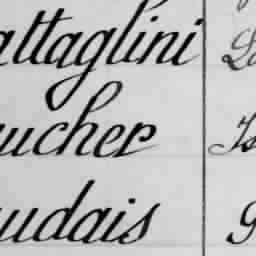 attaglini
ucher
udais